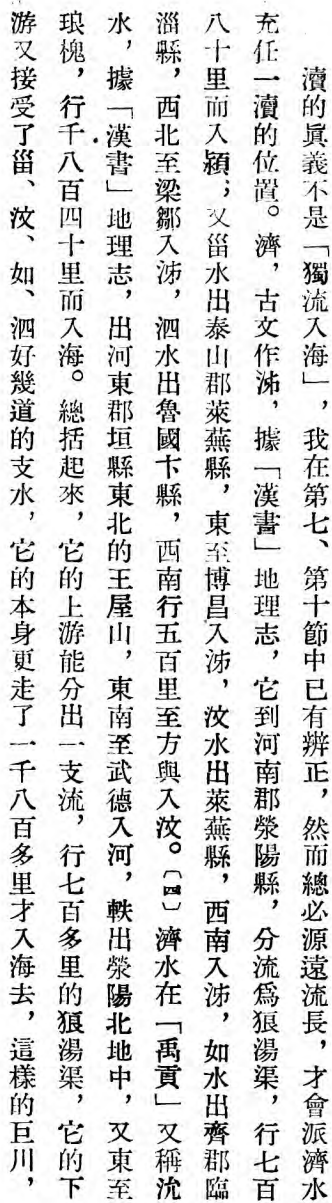 瀆的眞義不是「獨流入海」，我在第七、第十節中已有辨正，然而總必源遠流長，才會派濟水
充任一瀆的位置。濟，古文作泲，據「漢書」地理志，它到河南郡滎陽縣，分流爲狼湯渠，行七百
八十里而入潁；又甾水出泰山郡萊蕪縣，東至博昌入泲，汶水出萊蕪縣，西南入泲，如水出齊郡臨
淄縣，西北至梁鄒入泲，泗水出魯國卞縣，西南行五百里至方與入汶。〔四〕濟水在「禹貢」又稱沇
水，據「漢書」地理志，出河東郡垣縣東北的王屋山，東南至武德入河，軼出滎陽北地中，又東至
琅槐，行千八百四十里而入海。總括起來，它的上游能分出一支流，行七百多里的狼湯渠，它的下
游又接受了甾、汶、如、泗好幾道的支水，它的本身更走了一千八百多里才入海去，這樣的巨川，